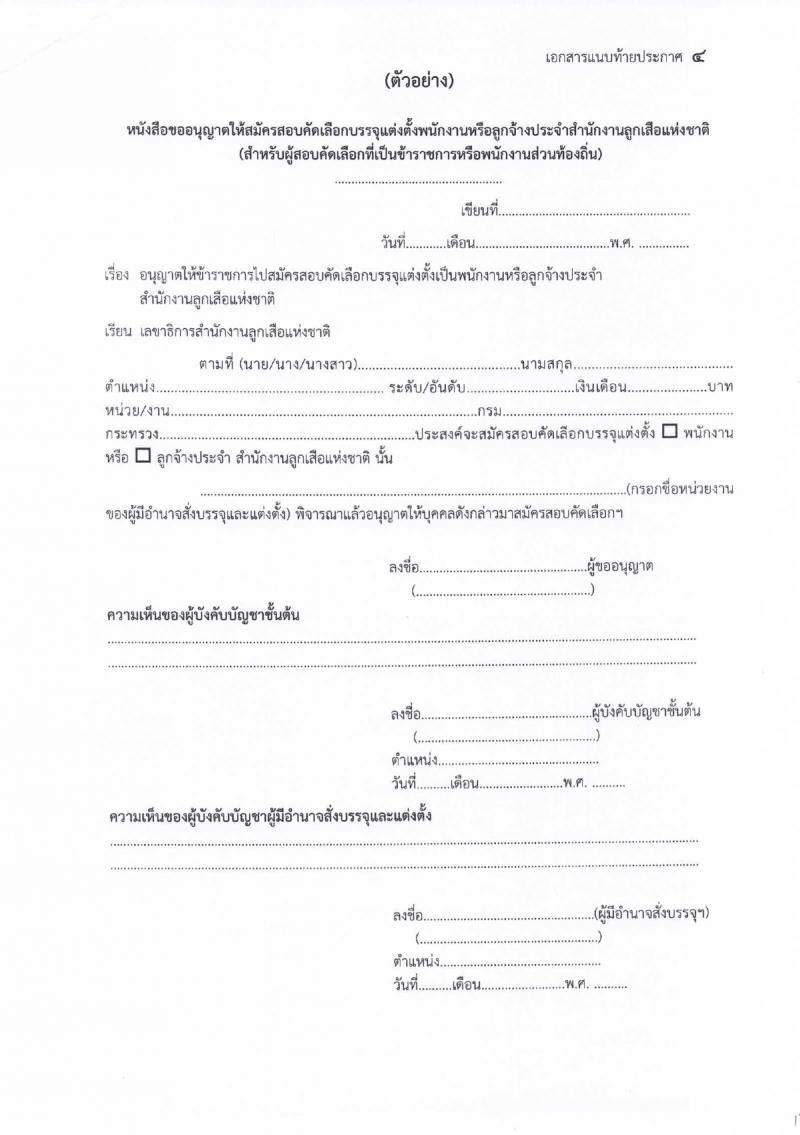 เอกสารแนบท้ายประกาศ ๔
(ตัวอย่าง)
หนังสือขออนุญาตให้สมัครสอบคัดเลือกบรรจุแต่งตั้งพนักงานหรือลูกจ้างประจำสำนักงานลูกเสือแห่งชาติ
(สำหรับผู้สอบคัดเลือกที่เป็นข้าราชการหรือพนักงานส่วนท้องถิ่น)
..................................................
เขียนที่.........................................................
วันที่............เดือน........................................พ.ศ. ...............
เรื่อง อนุญาตให้ข้าราชการไปสมัครสอบคัดเลือกบรรจุแต่งตั้งเป็นพนักงานหรือลูกจ้างประจำ
สำนักงานลูกเสือแห่งชาติ
เรียน เลขาธิการสำนักงานลูกเสือแห่งชาติ
ตามที่ (นาย/นาง/นางสาว)................................................นามสกุล................................................
ตำแหน่ง.................................................................... ระดับ/อันดับ................................เงินเดือน........................บาท
หน่วย/งาน............................................................................................กรม.....................................................................
กระทรวง............................................................................ประสงค์จะสมัครสอบคัดเลือกบรรจุแต่งตั้ง ☐ พนักงาน
หรือ ☐ ลูกจ้างประจำ สำนักงานลูกเสือแห่งชาติ นั้น
................................................................................................................................(กรอกชื่อหน่วยงาน
ของผู้มีอำนาจสั่งบรรจุและแต่งตั้ง) พิจารณาแล้วอนุญาตให้บุคคลดังกล่าวมาสมัครสอบคัดเลือกฯ
ลงชื่อ..................................................ผู้ขออนุญาต
(....................................................)
ความเห็นของผู้บังคับบัญชาชั้นต้น
................................................................................................................................................................................
................................................................................................................................................................................
ลงชื่อ...................................................ผู้บังคับบัญชาชั้นต้น
(.....................................................)
ตำแหน่ง................................................
วันที่..........เดือน.........................พ.ศ. ..........
ความเห็นของผู้บังคับบัญชาผู้มีอำนาจสั่งบรรจุและแต่งตั้ง
................................................................................................................................................................................
................................................................................................................................................................................
ลงชื่อ...................................................(ผู้มีอำนาจสั่งบรรจุฯ)
(.....................................................)
ตำแหน่ง................................................
วันที่..........เดือน.........................พ.ศ. ..........